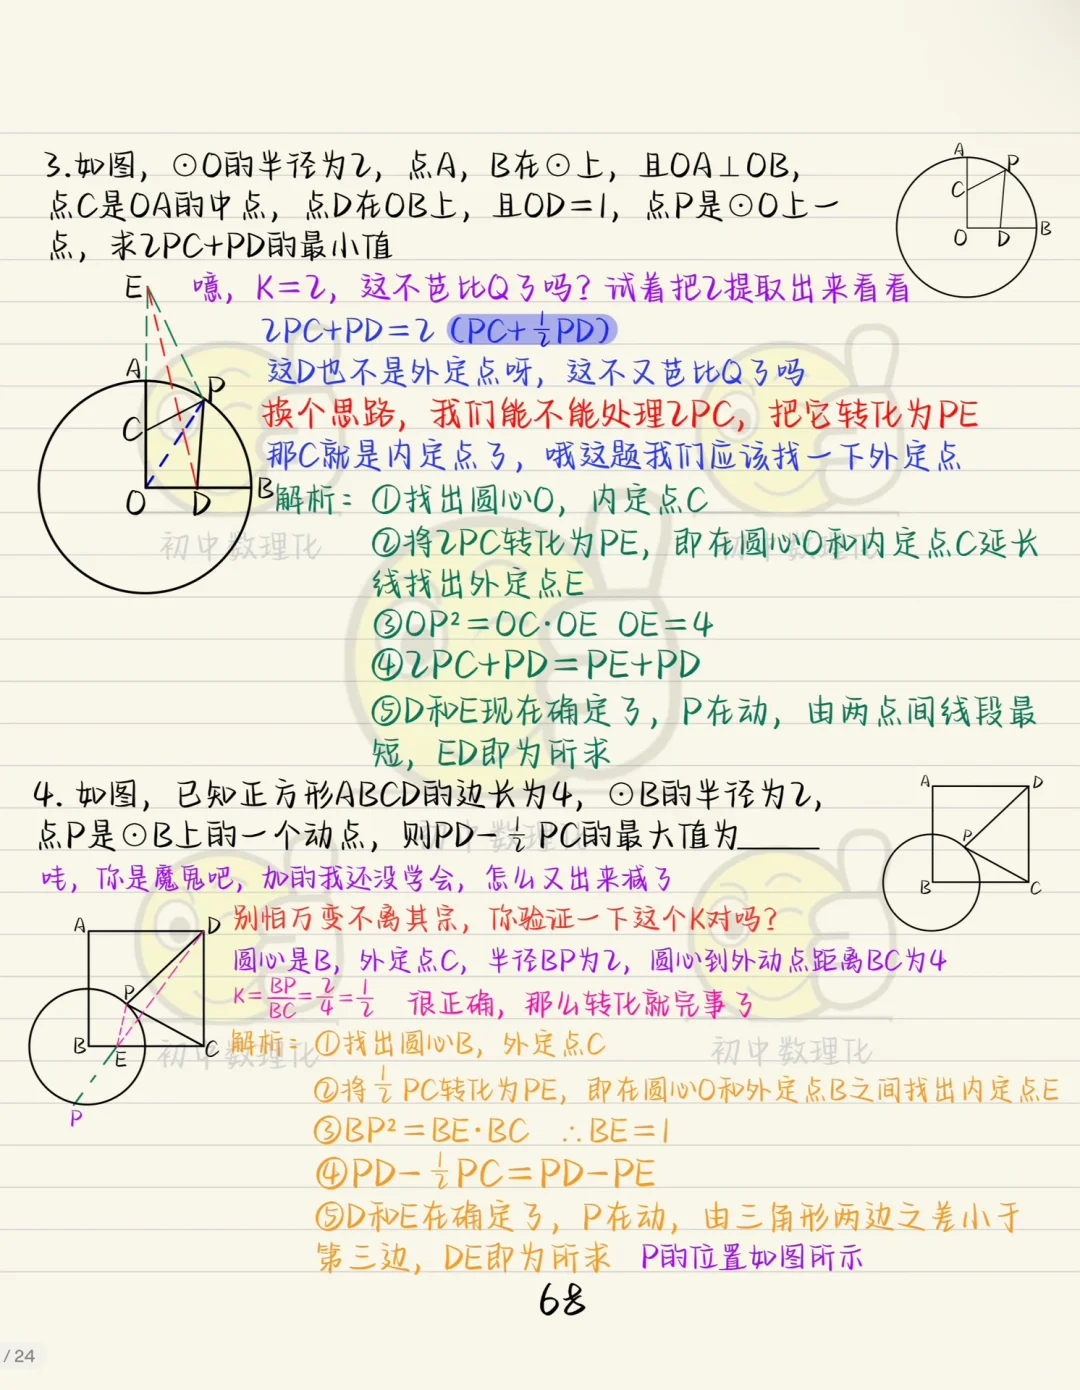 3.如图，⊙O的半径为2，点A，B在⊙上，且OA⊥OB，
点C是OA的中点，点D在OB上，且OD=1，点P是⊙O上一
点，求2PC+PD的最小值
A
P
C
O
D
B
噫，K=2，这不芭比Q了吗？试着把2提取出来看看
2PC+PD=2（PC+½PD）
这D也不是外定点呀，这不又芭比Q了吗
换个思路，我们能不能处理2PC，把它转化为PE
那C就是内定点了，哦这题我们应该找一下外定点
E
A
P
C
O
D
B
解析：①找出圆心O，内定点C
②将2PC转化为PE，即在圆心O和内定点C延长
线找出外定点E
③OP²=OC·OE OE=4
④2PC+PD=PE+PD
⑤D和E现在确定了，P在动，由两点间线段最
短，ED即为所求
初中数理化
初中数理化
初中数理化
4. 如图，已知正方形ABCD的边长为4，⊙B的半径为2，
点P是⊙B上的一个动点，则PD-½PC的最大值为______
A
D
P
B
C
哇，你是魔鬼吧，加的我还没学会，怎么又出来减了
别怕万变不离其宗，你验证一下这个K对吗？
圆心是B，外定点C，半径BP为2，圆心到外动点距离BC为4
K=BP/BC=2/4=1/2 很正确，那么转化就完事了
A
D
P
B
E
C
P
解析：①找出圆心B，外定点C
②将½PC转化为PE，即在圆心O和外定点B之间找出内定点E
③BP²=BE·BC ∴BE=1
④PD-½PC=PD-PE
⑤D和E在确定了，P在动，由三角形两边之差小于
第三边，DE即为所求 P的位置如图所示
初中数理化
初中数理化
68
/ 24